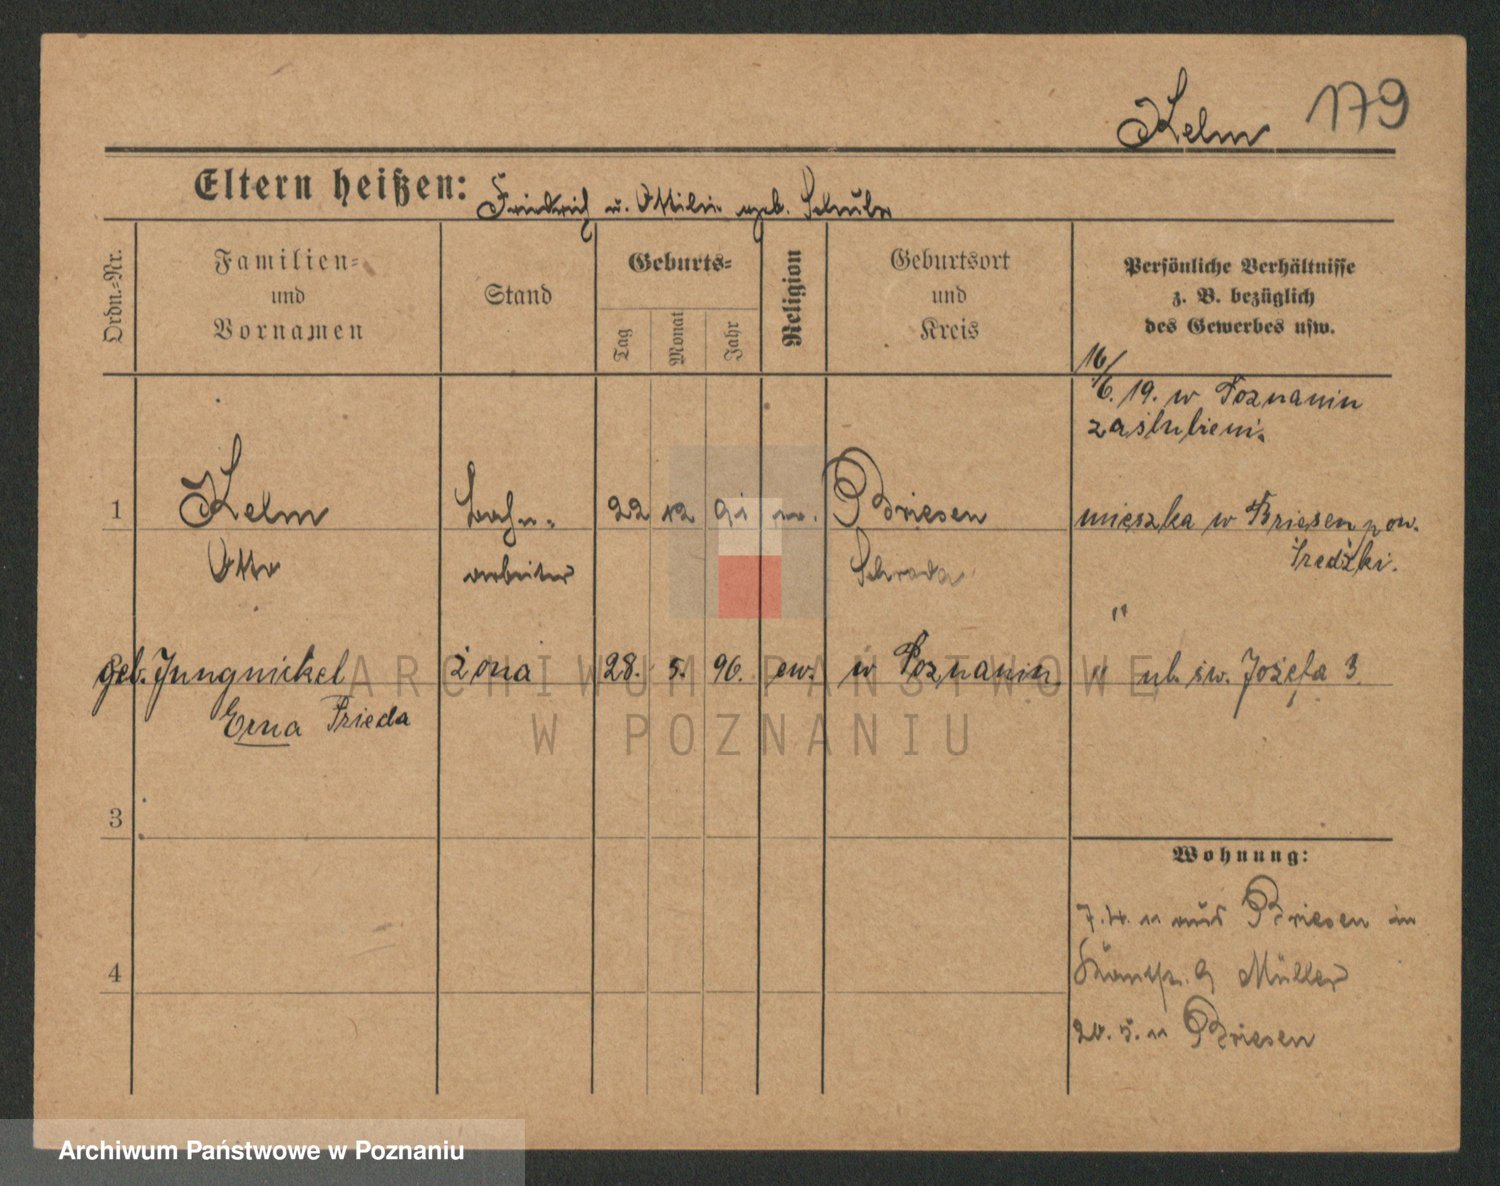 Kelm 179
Eltern heißen: Friedrich u. Ottilie geb. Schulz
Ordn.-Nr.
Familien-
und
Vornamen
Stand
Geburts-
Tag
Monat
Jahr
Religion
Geburtsort
und
Kreis
Persönliche Verhältnisse
z. B. bezüglich
des Gewerbes usw.
16/6. 19. w Poznaniu
zaślubieni.
1 Kelm
Otto
Bahn-
arbeiter
22 12 91 ev.
Briesen
Schroda
mieszka w Briesen pow.
Średzki.
"
geb. Jungnickel żona 28. 5. 96. ew. w Poznaniu " ul. św. Józefa 3.
Erna Frieda
3
4
Wohnung:
7.4. 11 aus Briesen in
9 Müller
20. 5. 11 Briesen
ARCHIWUM PAŃSTWOWE
W POZNANIU
Archiwum Państwowe w Poznaniu